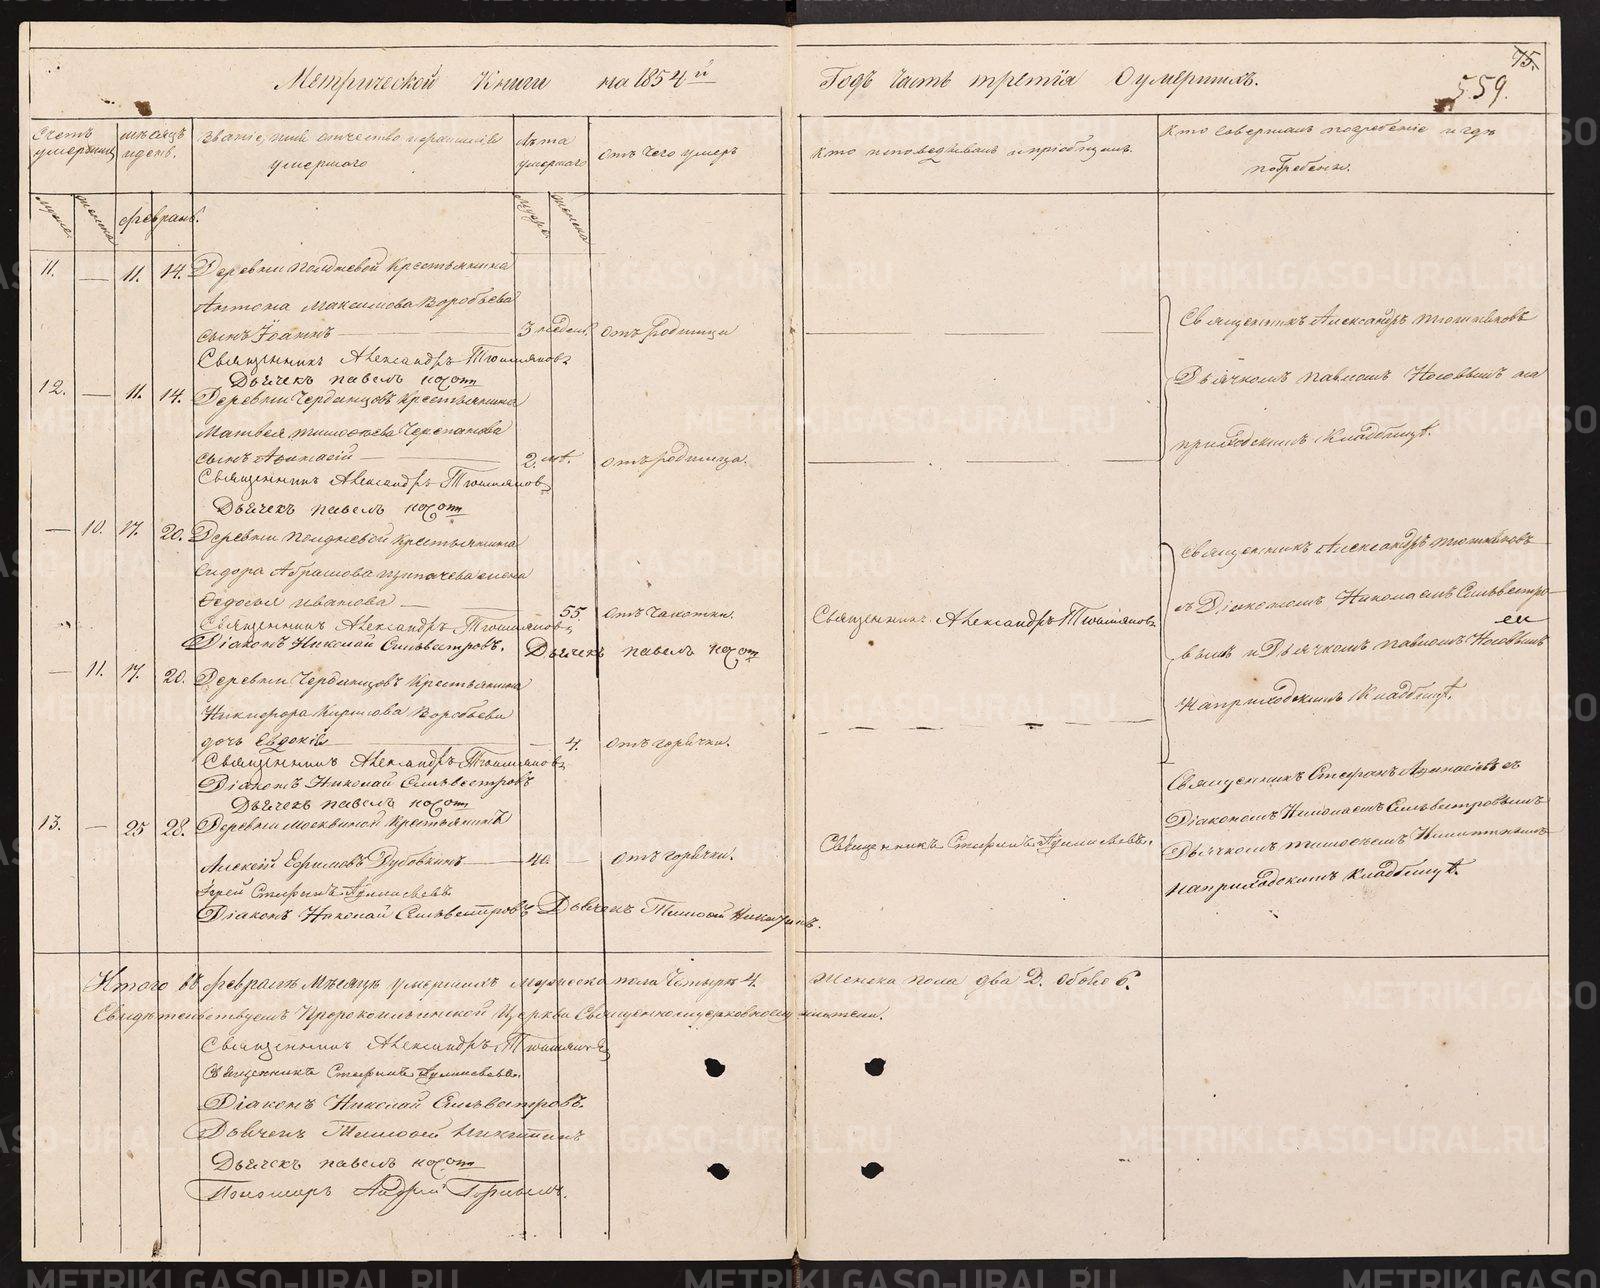 Метрической Книги на 1854й Годъ Часть третія О умершихъ.
75.
559.
Счетъ умершихъ
мѣсяцъ и день.
Званіе, имя, отчество и фамилія умершаго
Лѣта умершаго
отъ чего умеръ
кто исповѣдывалъ и пріобщалъ.
Кто совершалъ погребеніе и гдѣ погребены.
муж. женска Февраль. муж. женска
11. — 11. 14. Деревни Полдневой Крестьянина
Антона Максимова Воробьева
сынъ Іоаннъ — 3 недѣль. отъ родимца
Священникъ Александръ
Дьячекъ павелъ
Священникъ Александръ
Дьячкомъ павломъ Носовымъ на
приходскомъ Кладбищѣ.
12. — 11. 14. Деревни Черданцовъ Крестьянина
Матвея Тимофѣева Черепанова
сынъ Афанасій — 2. лѣт. отъ родимца.
Священникъ Александръ
Дьячекъ павелъ
— 10. 17. 20. Деревни Полдневой Крестьянина
Сидора Абрамова жена
Федосья Иванова — 55. отъ чахотки.
Священникъ Александръ
Діаконъ Николай Сильвестровъ. Дьячекъ павелъ
Священникъ Александръ
Священникъ Александръ
съ Діакономъ Николаемъ Сильвестро-
вымъ и Дьячкомъ павломъ Носовымъ
на приходскомъ Кладбищѣ.
— 11. 17. 20. Деревни Черданцовъ Крестьянина
Никифора Кирилова Воробьева
дочь Евдокія — 4. отъ горячки.
Священникъ Александръ
Діаконъ Николай Сильвестровъ
Дьячекъ павелъ
13. — 25 28. Деревни Москвиной Крестьянинъ
Алексѣй Ефимовъ Дубовкинъ — 40. — отъ горячки.
Іерей Стефанъ
Діаконъ Николай Сильвестровъ Дьячекъ Тимофей Никитинъ.
Священникъ Стефанъ
Священникъ Стефанъ съ
Діакономъ Николаемъ Сильвестровымъ
Дьячкомъ Тимофѣемъ Никитинымъ
на приходскомъ Кладбищѣ.
Итого въ февралѣ Мѣсяцѣ умершихъ мужеска пола Четыре 4. женска пола два 2. обоего 6.
Свидѣтельствуемъ Пророкоильинской Церкви Священноцерковнослужители.
Священникъ Александръ
Священникъ Стефанъ
Діаконъ Николай Сильвестровъ.
Дьячекъ Тимофей Никитинъ
Дьячекъ павелъ
Пономарь Андрей
METRIKI.GASO-URAL.RU